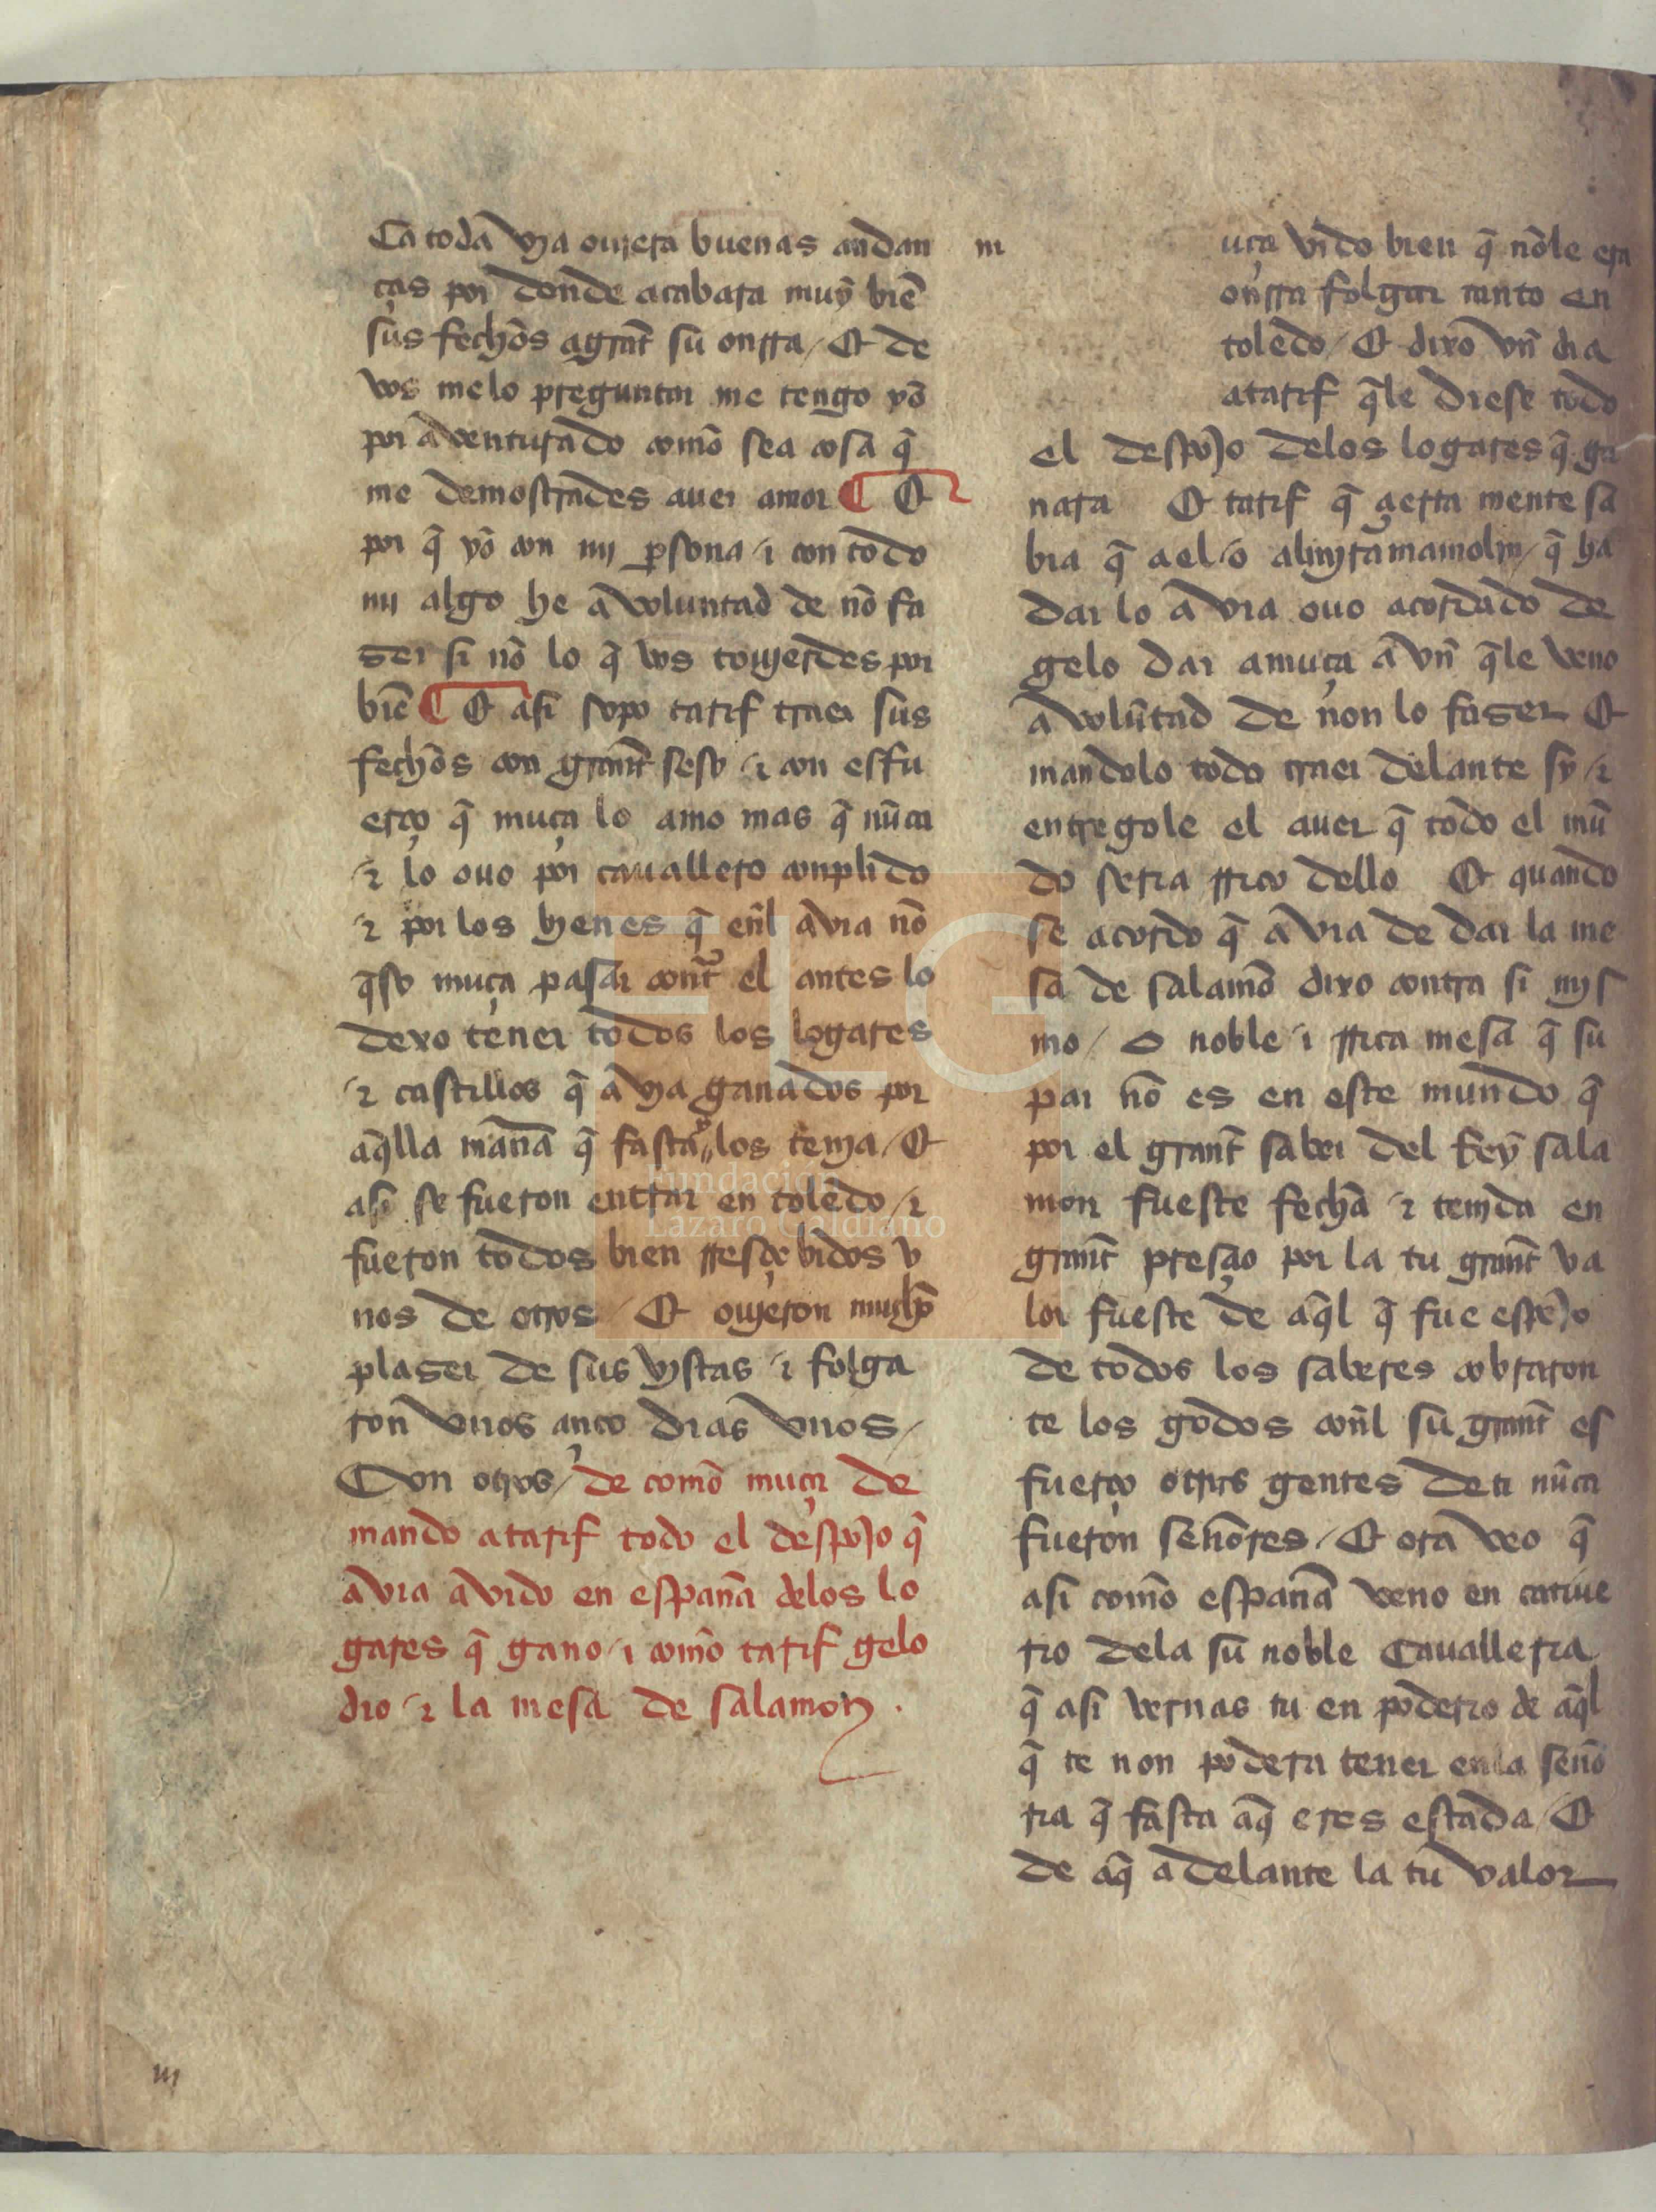 Ca toda vya ouiera buenas andan
ças por donde acabara muy biẽ
sus fechos a grant su onrra / Et de
vos me lo preguntar me tengo yo
por aventurado como sea cosa q̃
me demostrades auer amor ¶ Et
por q̃ yo con my ꝑsona / ⁊ con todo
my algo he a voluntad de nõ fa
ser si nõ lo q̃ vos touierdes por
biẽ ¶ Et asi sopo tarif traer sus
fechos con grant seso / ⁊ con esfu
erço q̃ muça lo amo mas q̃ nũca
/ ⁊ lo ouo por cauallero conplido
/ ⁊ por los byenes q̃ eñl avia nõ
q̃so muça pasar contr̃ el antes lo
dexo tener todos los logares
/ ⁊ castillos q̃ a vya ganados por
aq̃lla mañana q̃ fasta y los tenya / Et
asi se fueron entrar en toledo / ⁊
fueron todos bien rresçebidos v
nos de otros / Et ouieron mucho
plaser de sus vystas / ⁊ folga
ron vnos çinco dias vnos /
Con otros / de como muça de
mando a tarif todo el despojo q̃
avia avido en españa delos lo
gares q̃ gano / ⁊ como tarif gelo
dio / ⁊ la mesa de salamon .
m
uça vido bien q̃ nõle era
onrra folgar tanto en
toledo / Et dixo vñ dia
a tarif q̃le diese todo
el despojo delos logares q̃ ga
nara Et tarif q̃ çierta mente sa
bia q̃ a el / o almyramamolyn / q̃ ha
dar lo avia ouo acordado de
gelo dar a muça avñ q̃le veno
a volũtad de non lo faser Et
mandolo todo traer delante sy / ⁊
entregole el auer q̃ todo el mũ
do seria rrico dello Et quando
se acordo q̃ avia de dar la me
sa de salamõ dixo contra si mys
mo / o noble / ⁊ rrica mesa q̃ su
par nõ es en este mundo q̃
por el grant saber del Rey sala
mon fueste fecha / ⁊ tenida en
grant presçio por la tu grant va
lor fueste de aq̃l q̃ fue espejo
de todos los saberes cobraron
te los godos coñl su grant es
fuerço otras gentes de ti nũca
fueron señores / Et ora veo q̃
asi como españa veno en catiue
rio dela su noble Caualleria
q̃ asi vernas tu en poderio de aq̃l
q̃ te non podera tener enla seño
ria q̃ fasta aq̃ eres estada / Et
de aq̃ adelante la tu valor
m
FLG
Fundación
Lázaro Galdiano